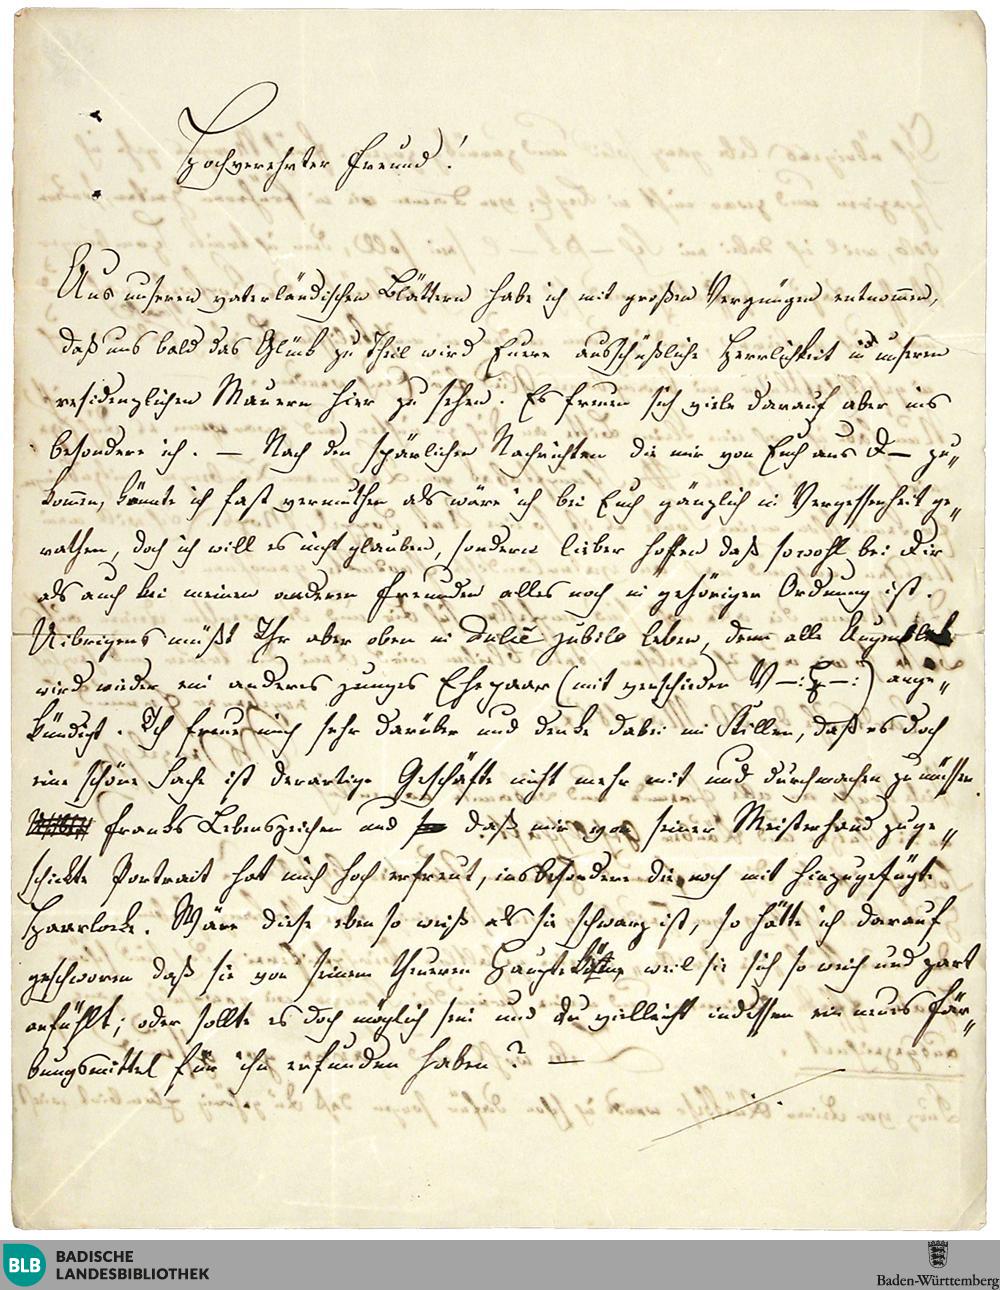 Hochverehrter Freund!
Aus unseren vaterländischen Blättern habe ich mit großem Vergnügen entnommen,
daß uns bald das Glück zu Theil wird Euere ausschüßliche Herrlichkeit in unseren
residenzlichen Mauern hier zu sehen. Es freuen sich viele darauf aber ins
besondere ich. — Nach den spärlichen Nachrichten die mir von Euch aus D— zu„
kommen, könnte ich fast vermuthen als wäre ich bei Euch gänzlich in Vergessenheit ge„
rathen, doch ich will es nicht glauben, sondern lieber hoffen daß sowohl bei Dir
als auch bei meinen anderen Freunden alles noch in gehöriger Ordnung ist.
Uibrigens müßt Ihr aber oben in jubilo leben, denn alle Augenblick
wird wieder ein anderes junges Ehepaar (mit ) ange„
kündigt. Ich freue mich sehr darüber und denke dabei im Stillen, daß es doch
eine schöne Sache ist derartige Geschäfte nicht mehr mit und durchmachen zu müssen.
Franks Lebenszeichen und daß mir von seiner Meisterhand zuge„
schickte Portrait hat mich hoch erfreut, insbesondere die noch mit hinzugefügte
Haarlocke. Wäre diese ebenso weiß als sie schwarz ist, so hätte ich darauf
geschworen daß sie von seinem theueren Haupte weil sie sich so weich und zart
anfühlt; oder sollte es doch möglich sein und Du vielleicht indessen ein neues Fär„
bungsmittel für ihn erfunden haben? —
BLB BADISCHE
LANDESBIBLIOTHEK
Baden-Württemberg